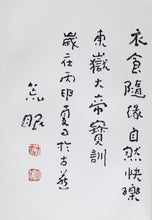 衣食隨緣自然快樂
東嶽大帝寶訓
歲在丙申夏日於古燕
眼